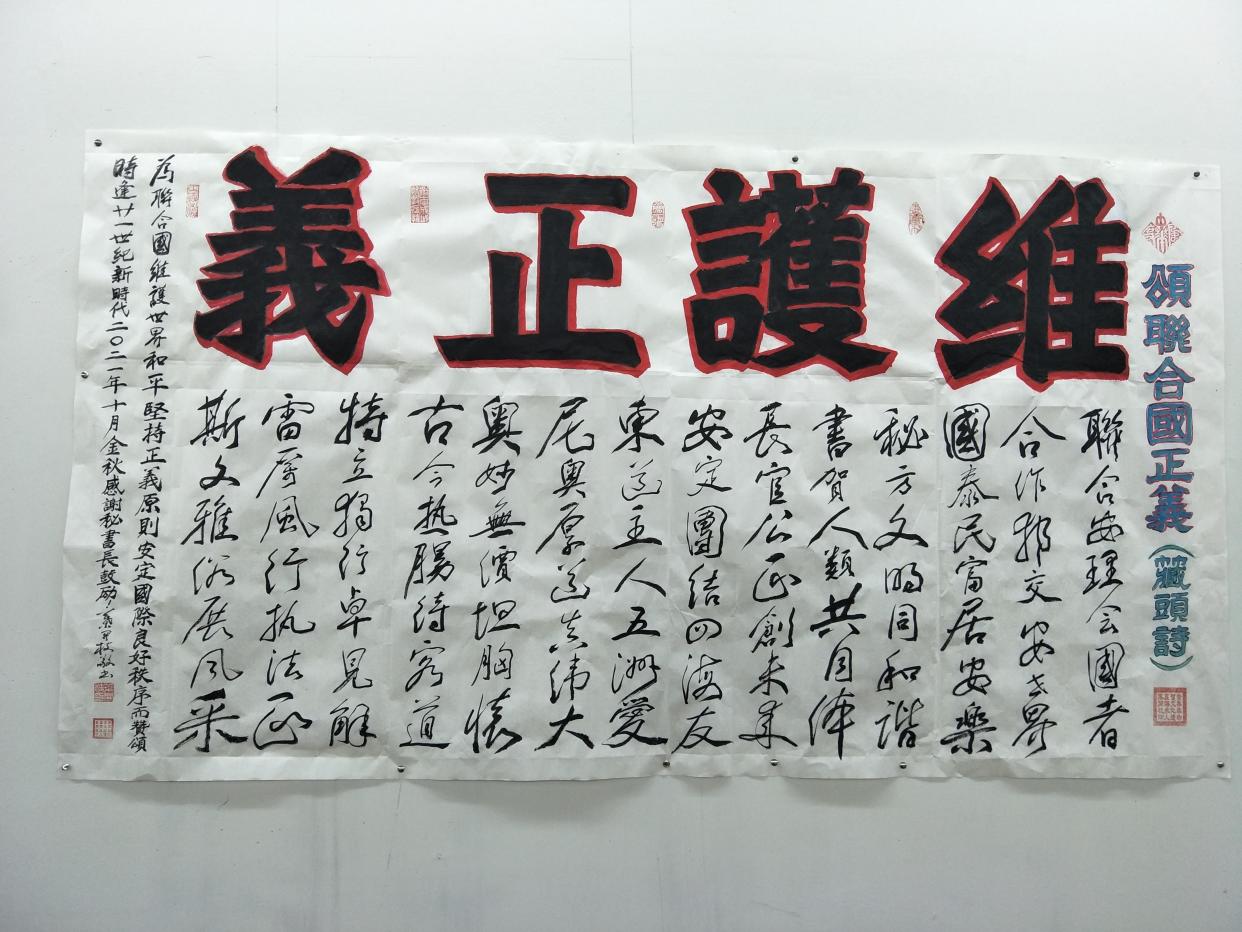 維護正義
頌聯合國正義(藏頭詩)
聯合安理会國者
合作邦交安世界
國泰民富居安樂
秘方文明同和諧
書賀人類共同体
長官公正創未来
安定團结四海友
東道主人五洲愛
尼奧厚道真伟大
奧妙無價坦胸懐
古今热腸待客道
特立獨行卓見解
雷厲風行执法正
斯文雅俗展风采
為聯合國維護世界和平堅持正義原則安定國際良好秩序而贊頌
時逢廿一世紀新時代二〇二一年十月金秋感謝秘書長鼓励